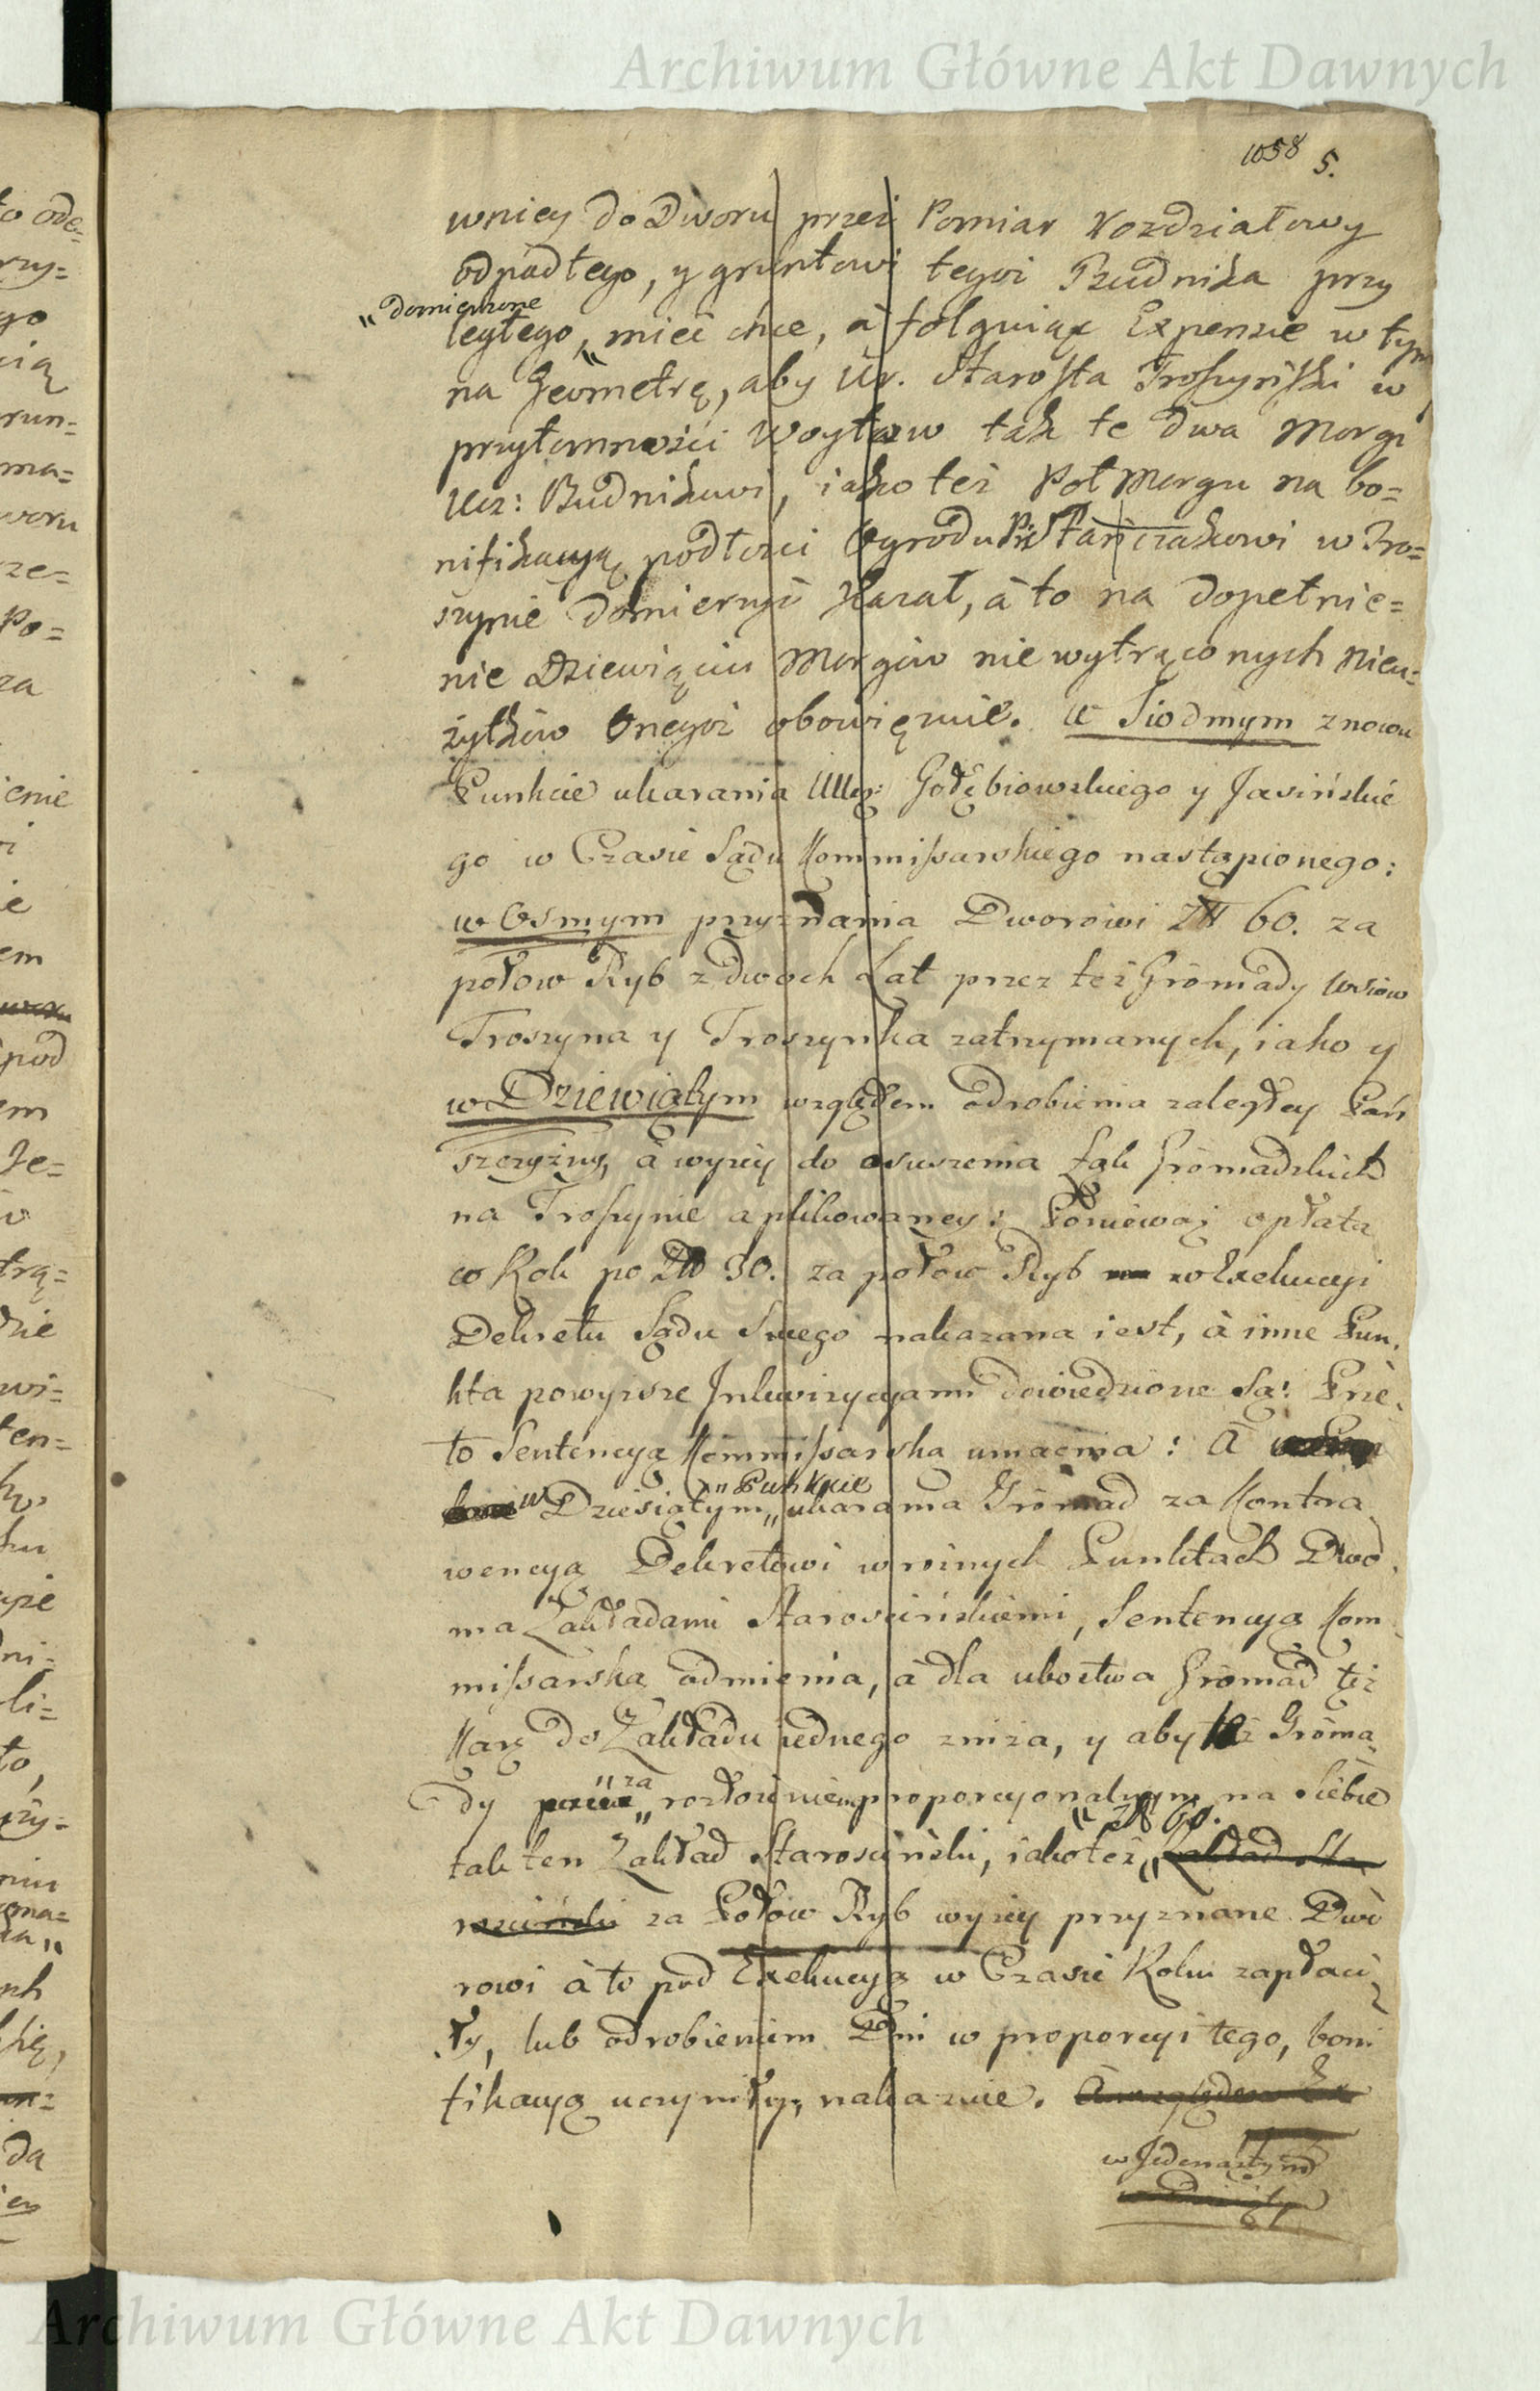 Archiwum Główne Akt Dawnych
1058 5.
wniey do Dworu przez Pomiar Rozdziałowy
odpadłego, y gruntowi tegoż Budnika przy
„domierzone
ległego, mieć chce, à folguiąc Expensie w tym
na Geometrę, aby Ur. Starosta Troszyński w
przytomności Woytow tak te dwa Morgi
Ucz: Budnikowi, iako też Poł Morgu na bo=
nifikacyą podłości Ogrodu Stańczakowi w Tro=
szynie domierzyć Kazał, à to na dopełnie=
nie Dziewięciu Morgów nie wytrąconych Nieu=
żytków Onegoż obowięzuie. W Siodmym znowu
Punkcie ukarania Ucz: Gołębiowskiego y Jasińskie
go w Czasie Sądu Kommissarskiego nastąpionego:
w Osmym przyznania Dworowi Złł 60. za
połow Ryb z dwoch Lat przez też Gromady Wsiow
Troszyna y Troszynka zatrzymanych, iako y
w Dziewiątym względem odrobienia zaległey Pań
szczyzny, à wyżey do osuszenia Łąk Gromadzkich
na Troszynie aplikowaney: Ponieważ opłata
co Rok po Złł 30. za połow Ryb w Exekucyi
Dekretu Sądu Swego nakazana iest, à inne Pun.
kta powyższe Inkwizycyami dowiedzione są: Prze.
to Sentencyą Kommissarska umacnia: A
w Dziesiątym „Punkcie„ ukarania Gromad za Kontra
wencyą Dekretowi w roznych Punktach Dwo.
ma Zakładami Starościńskiemi, Sentencyą Kom
missarską odmienia, à dla ubostwa Gromad też
Karę do Zakładu iednego zniża, y aby też Groma.
dy „za„ rozłożeniem proporcyonalnym na siebie
„Złł 60.
tak ten Zakład Starościński, iako też „Zakład Sta
rościński za Połow Ryb wyżey przyznane Dwo
rowi à to pod Exekucyą w Czasie Roku zapłaci
ły, lub odrobieniem Dni w proporcyi tego, boni
fikacyą uczyniły, nakazuie. A względem Ex
w Jedenastym
Archiwum Główne Akt Dawnych